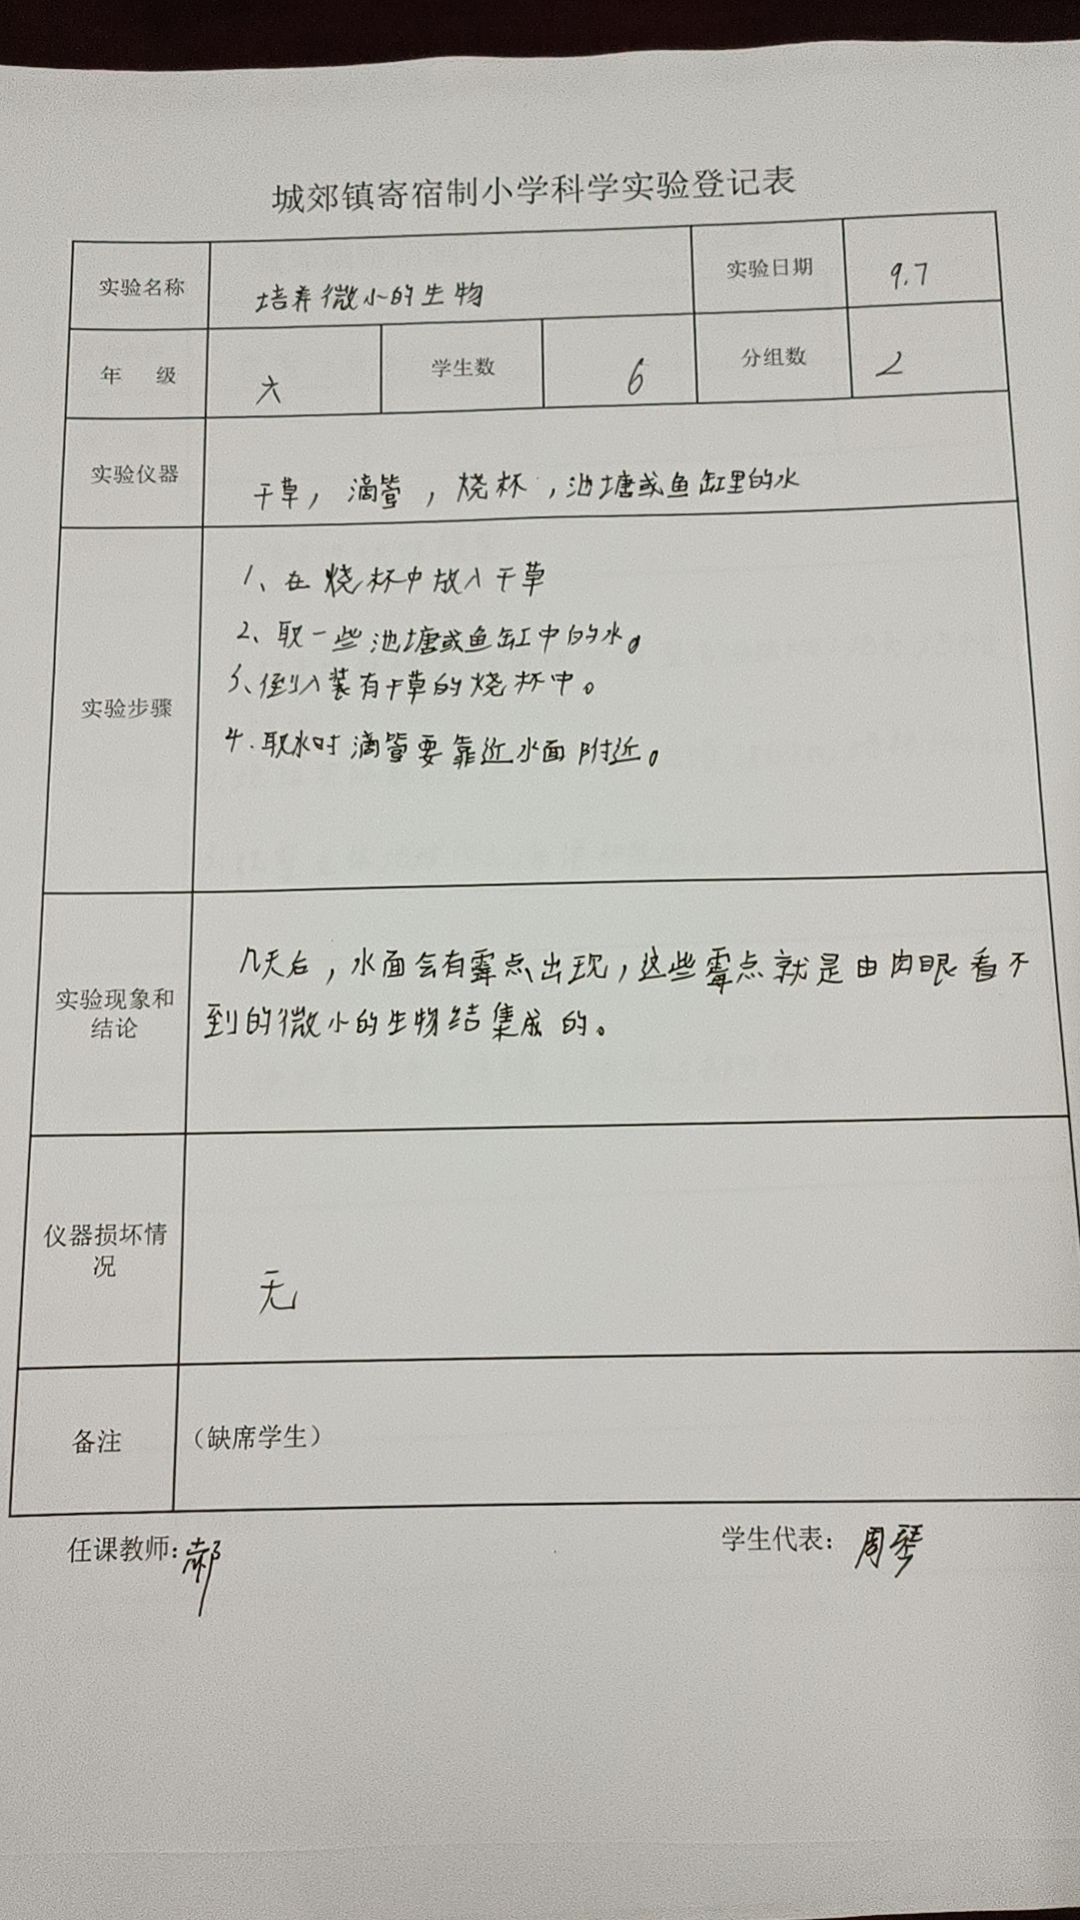 城郊镇寄宿制小学科学实验登记表
实验名称 培养微小的生物 实验日期 9.7
年 级 六 学生数 6 分组数 2
实验仪器 干草，滴管，烧杯，池塘或鱼缸里的水
实验步骤
1、在烧杯中放入干草
2、取一些池塘或鱼缸中的水。
3、倒入装有干草的烧杯中。
4.取水时滴管要靠近水面附近。
实验现象和
结论
几天后，水面会有霉点出现，这些霉点就是由肉眼看不
到的微小的生物结集成的。
仪器损坏情
况
无
备注 （缺席学生）
任课教师：郝 学生代表：周琴